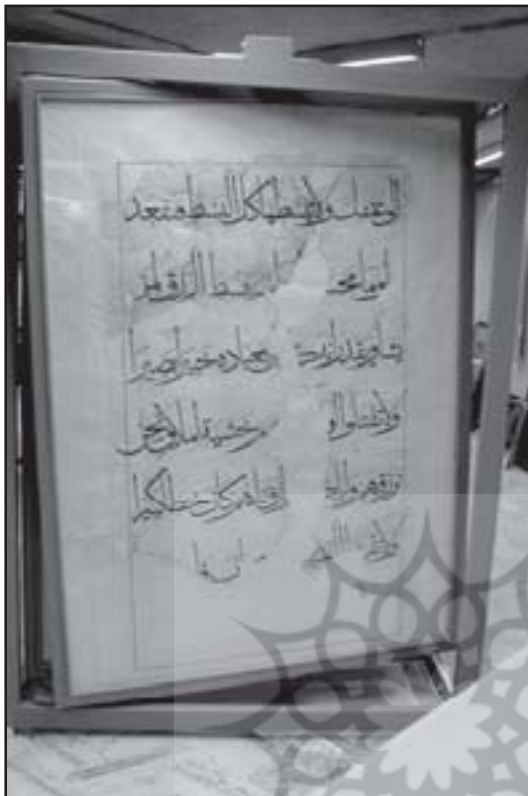 الى عنقك ولا تبسطها كل البسط فتقعد
ملوما محـ يبسط الرزق لمن
يشاء ويقدر انه بعباده خبيرا بصيرا
ولا تقتلوا او خشية املاق نحن
نرزقهم وايا قتلهم كان خطا كبيرا
ولا